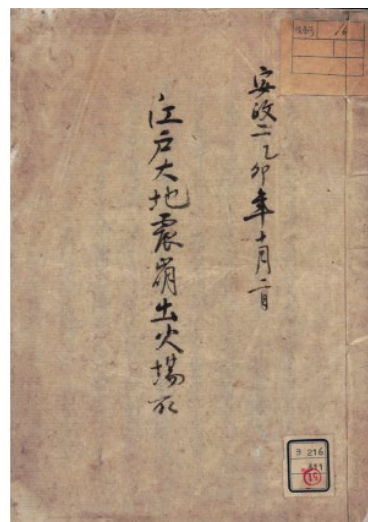 安政二乙卯年十月二日
江戸大地震崩出火場所
ヨ 216
311
(15)